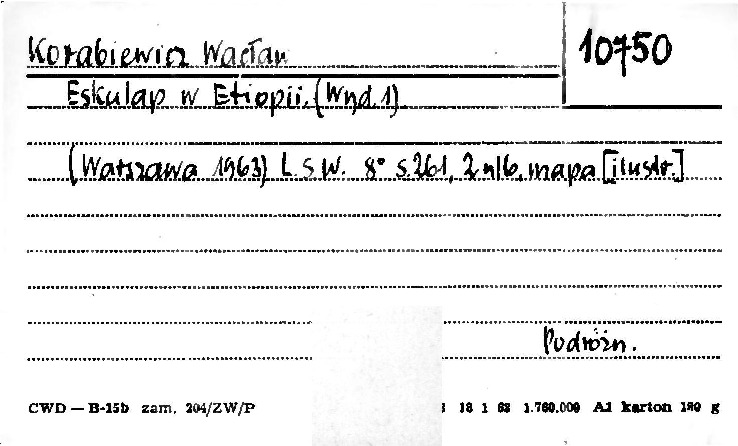 Korabiewicz Wacław
10750
Eskulap w Etiopii. (Wyd. 1)
(Warszawa 1963) L.S.W. 8° s. 261, 2 nlb, mapa [ilustr.]
Podróżn.
CWD — B-15b zam. 204/ZW/P 18 1 68 1.760.000 A1 karton 180 g